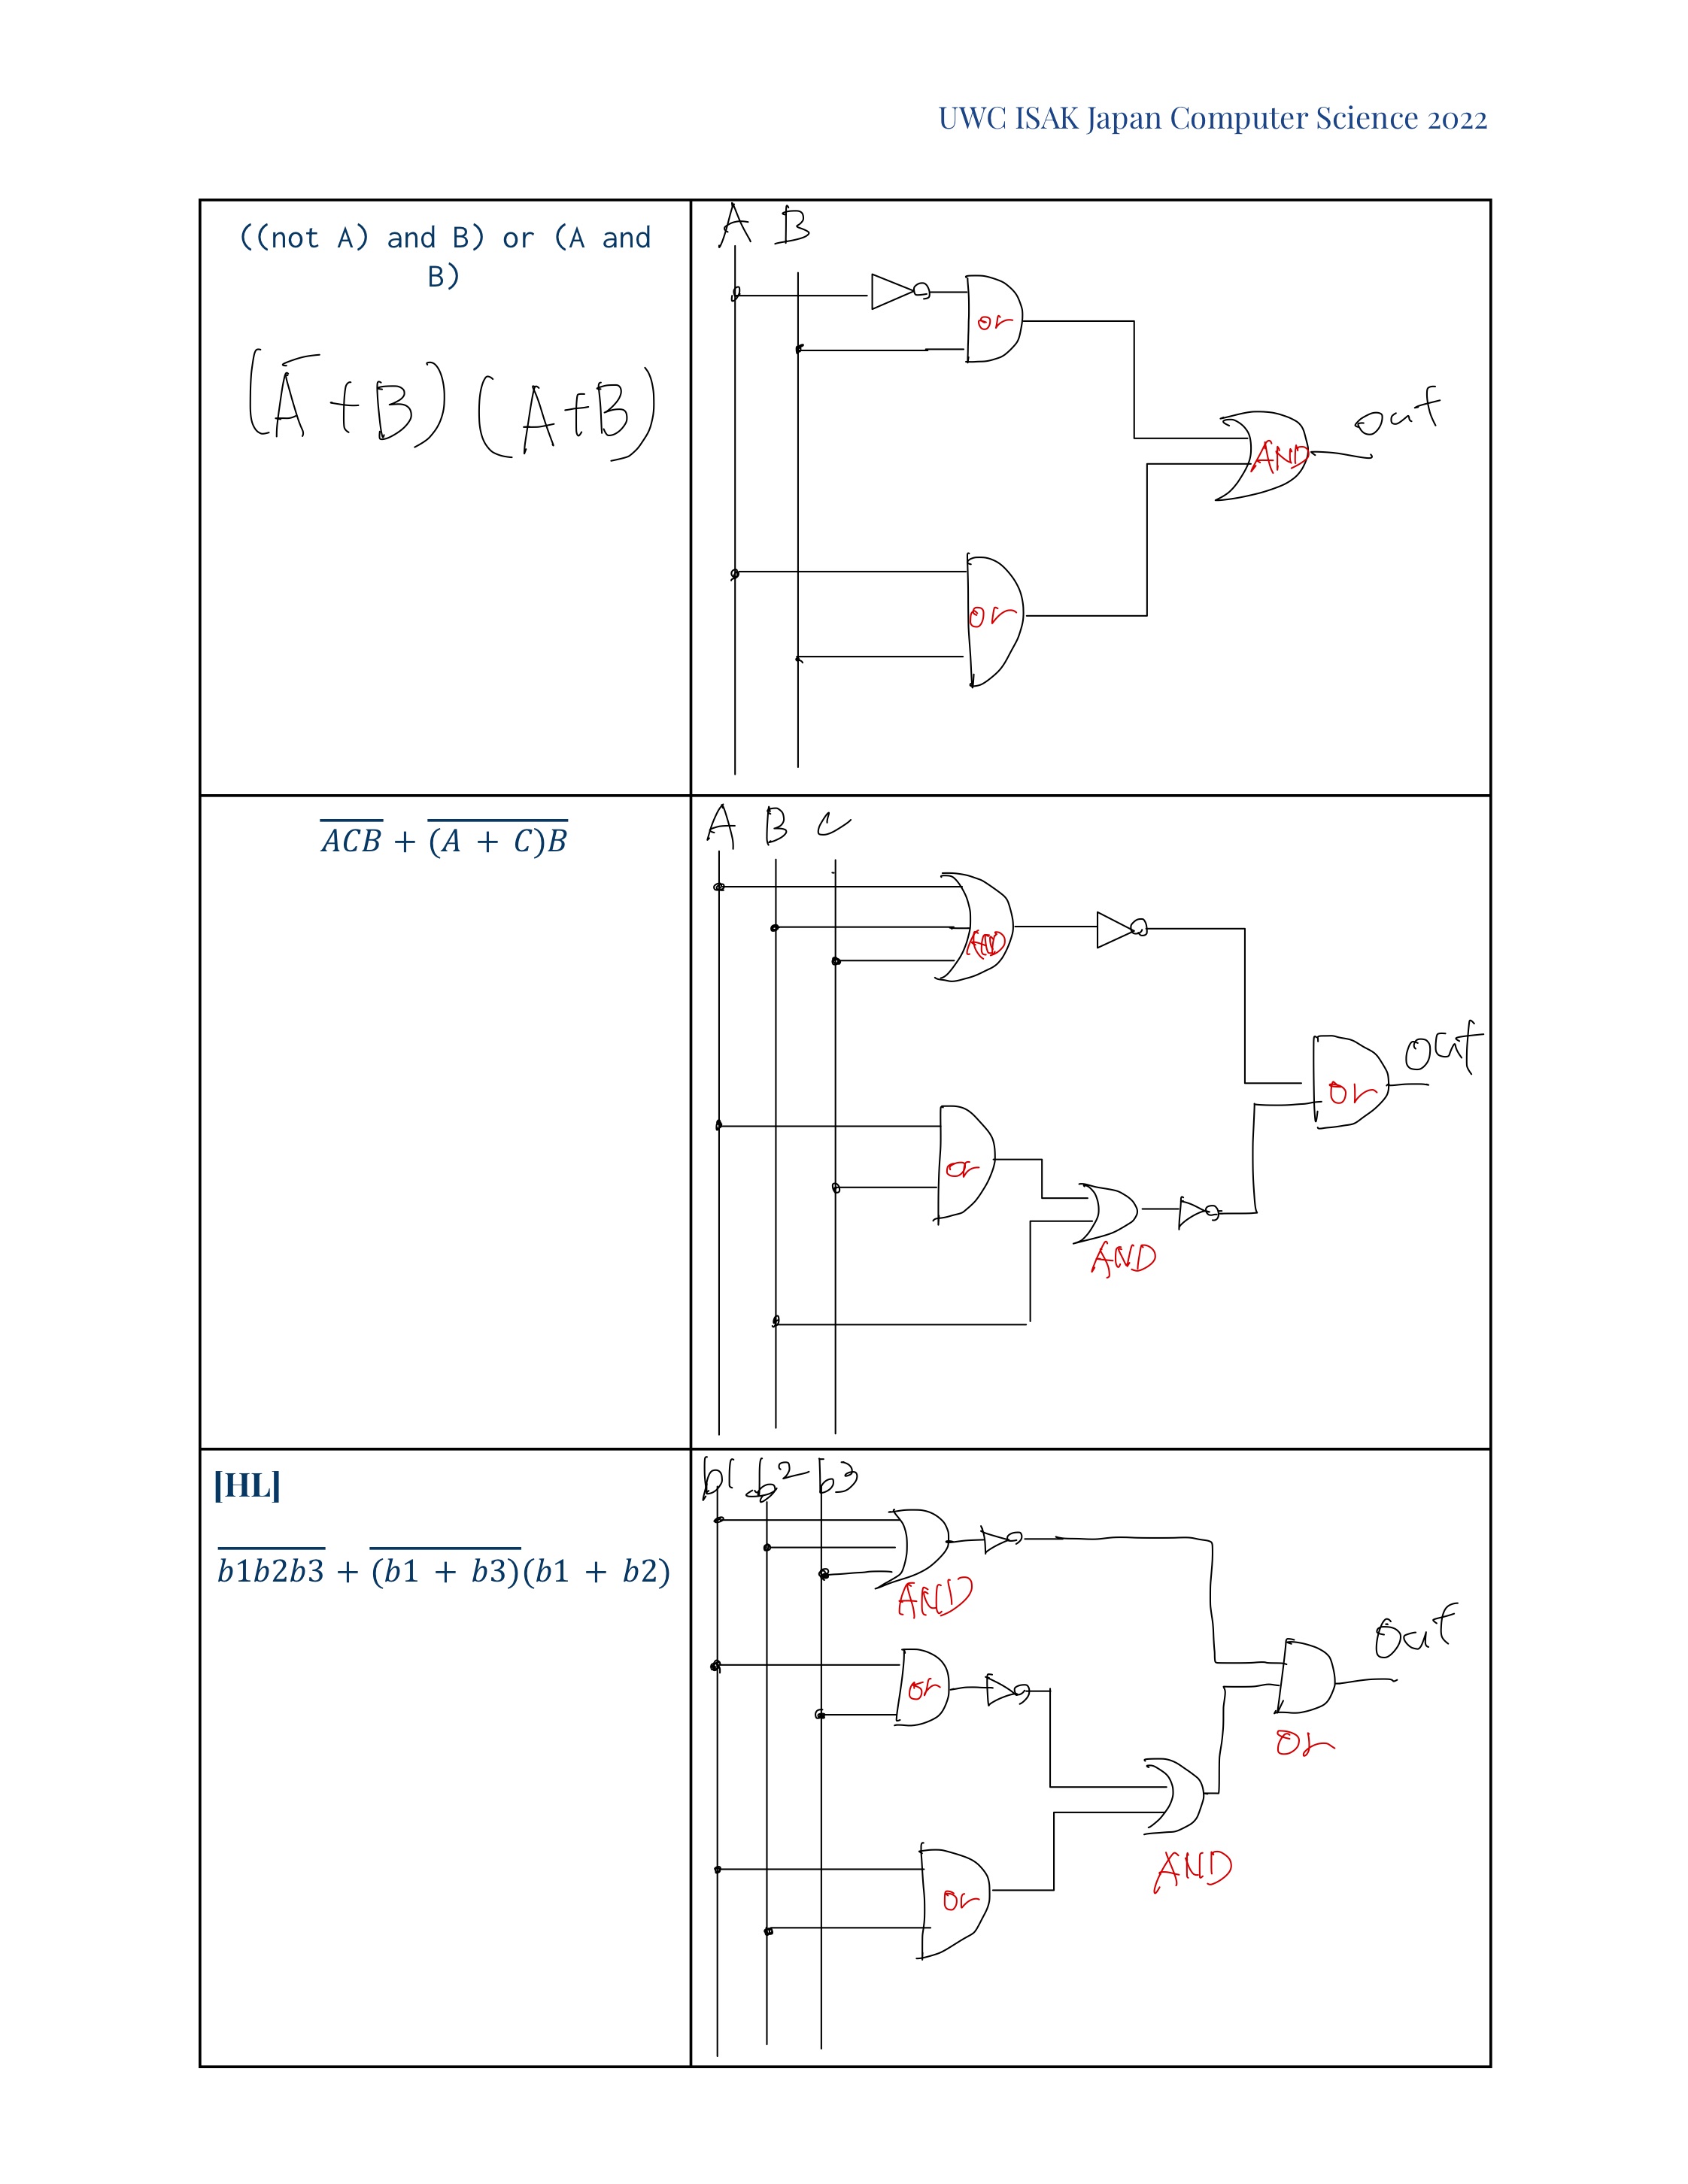 UWC ISAK Japan Computer Science 2022
((not A) and B) or (A and
B)
(A̅ + B) (A+B)
A B
or
or
AND
out
\overline{ACB} + \overline{(A + C)B}
A B C
AND
or
AND
or
out
[HL]
\overline{b1b2b3} + \overline{(b1 + b3)}(b1 + b2)
b1 b2 b3
AND
or
or
AND
or
out